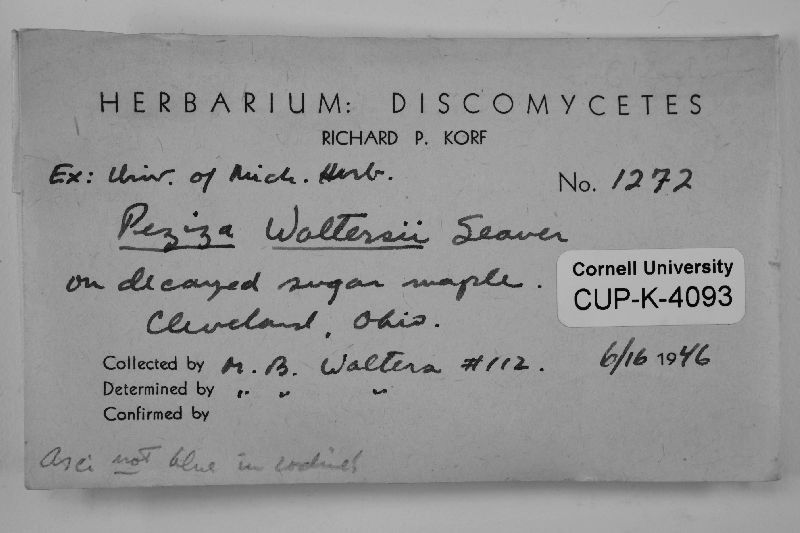 HERBARIUM: DISCOMYCETES
RICHARD P. KORF
Ex: Univ. of Mich. Herb.
No. 1272
Peziza Waltersii Seaver
on decayed sugar maple.
Cornell University
CUP-K-4093
Cleveland, Ohio.
Collected by M. B. Walters #112. 6/16 1946
Determined by " " "
Confirmed by
Asci not blue in iodine!